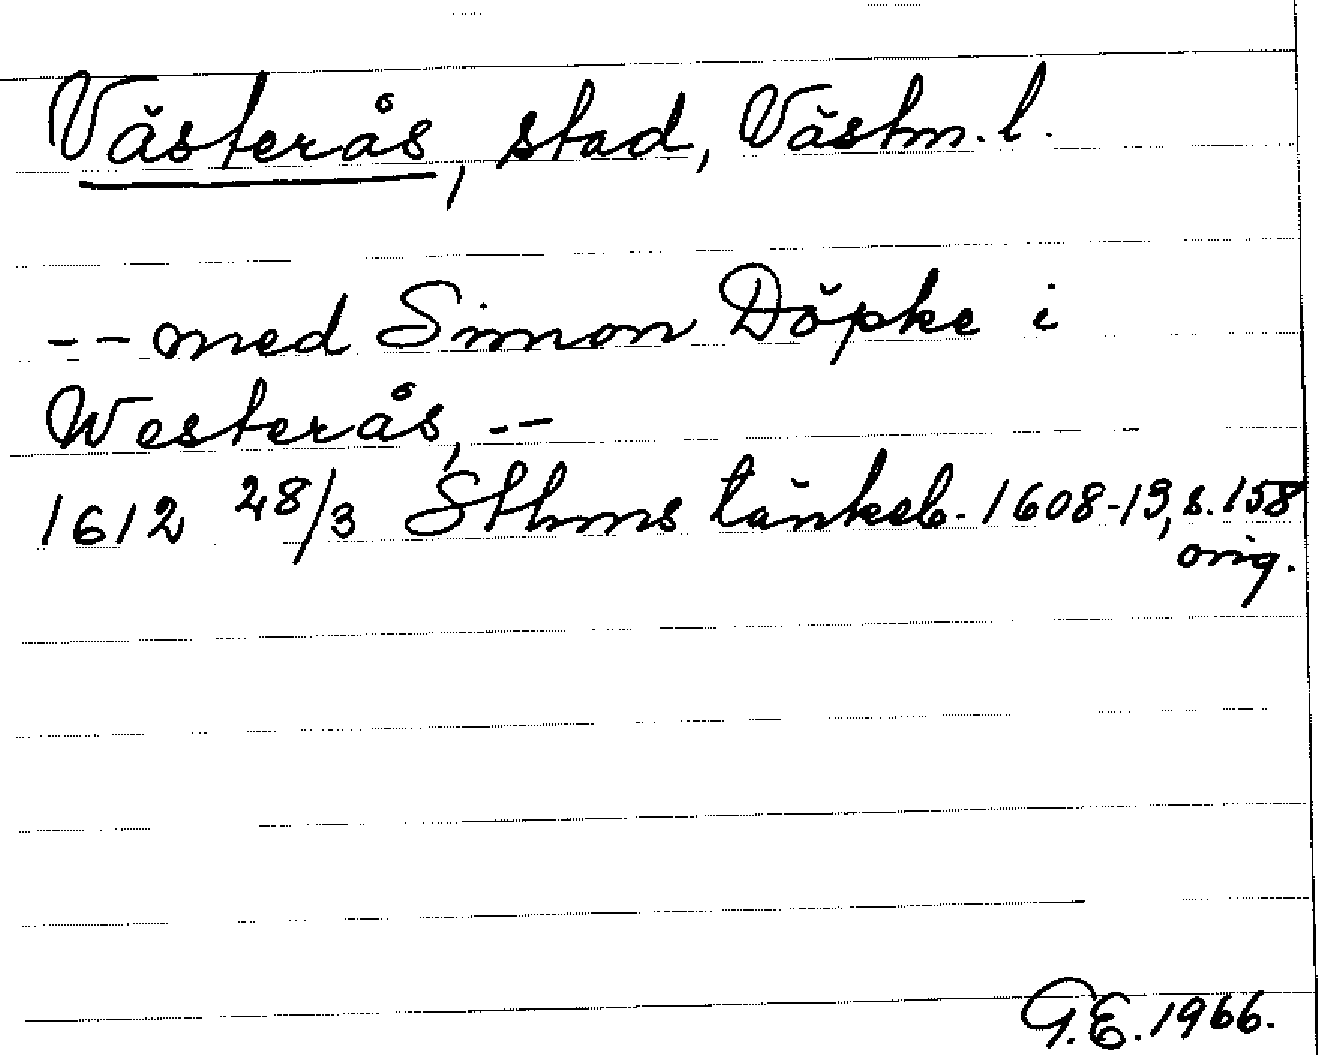 Västerås, stad, Västm. l.
-- med Simon Döpke i
Westerås, --
1612 28/3 Sthms tänkeb. 1608-13, s. 158
orig.
G.E. 1966.